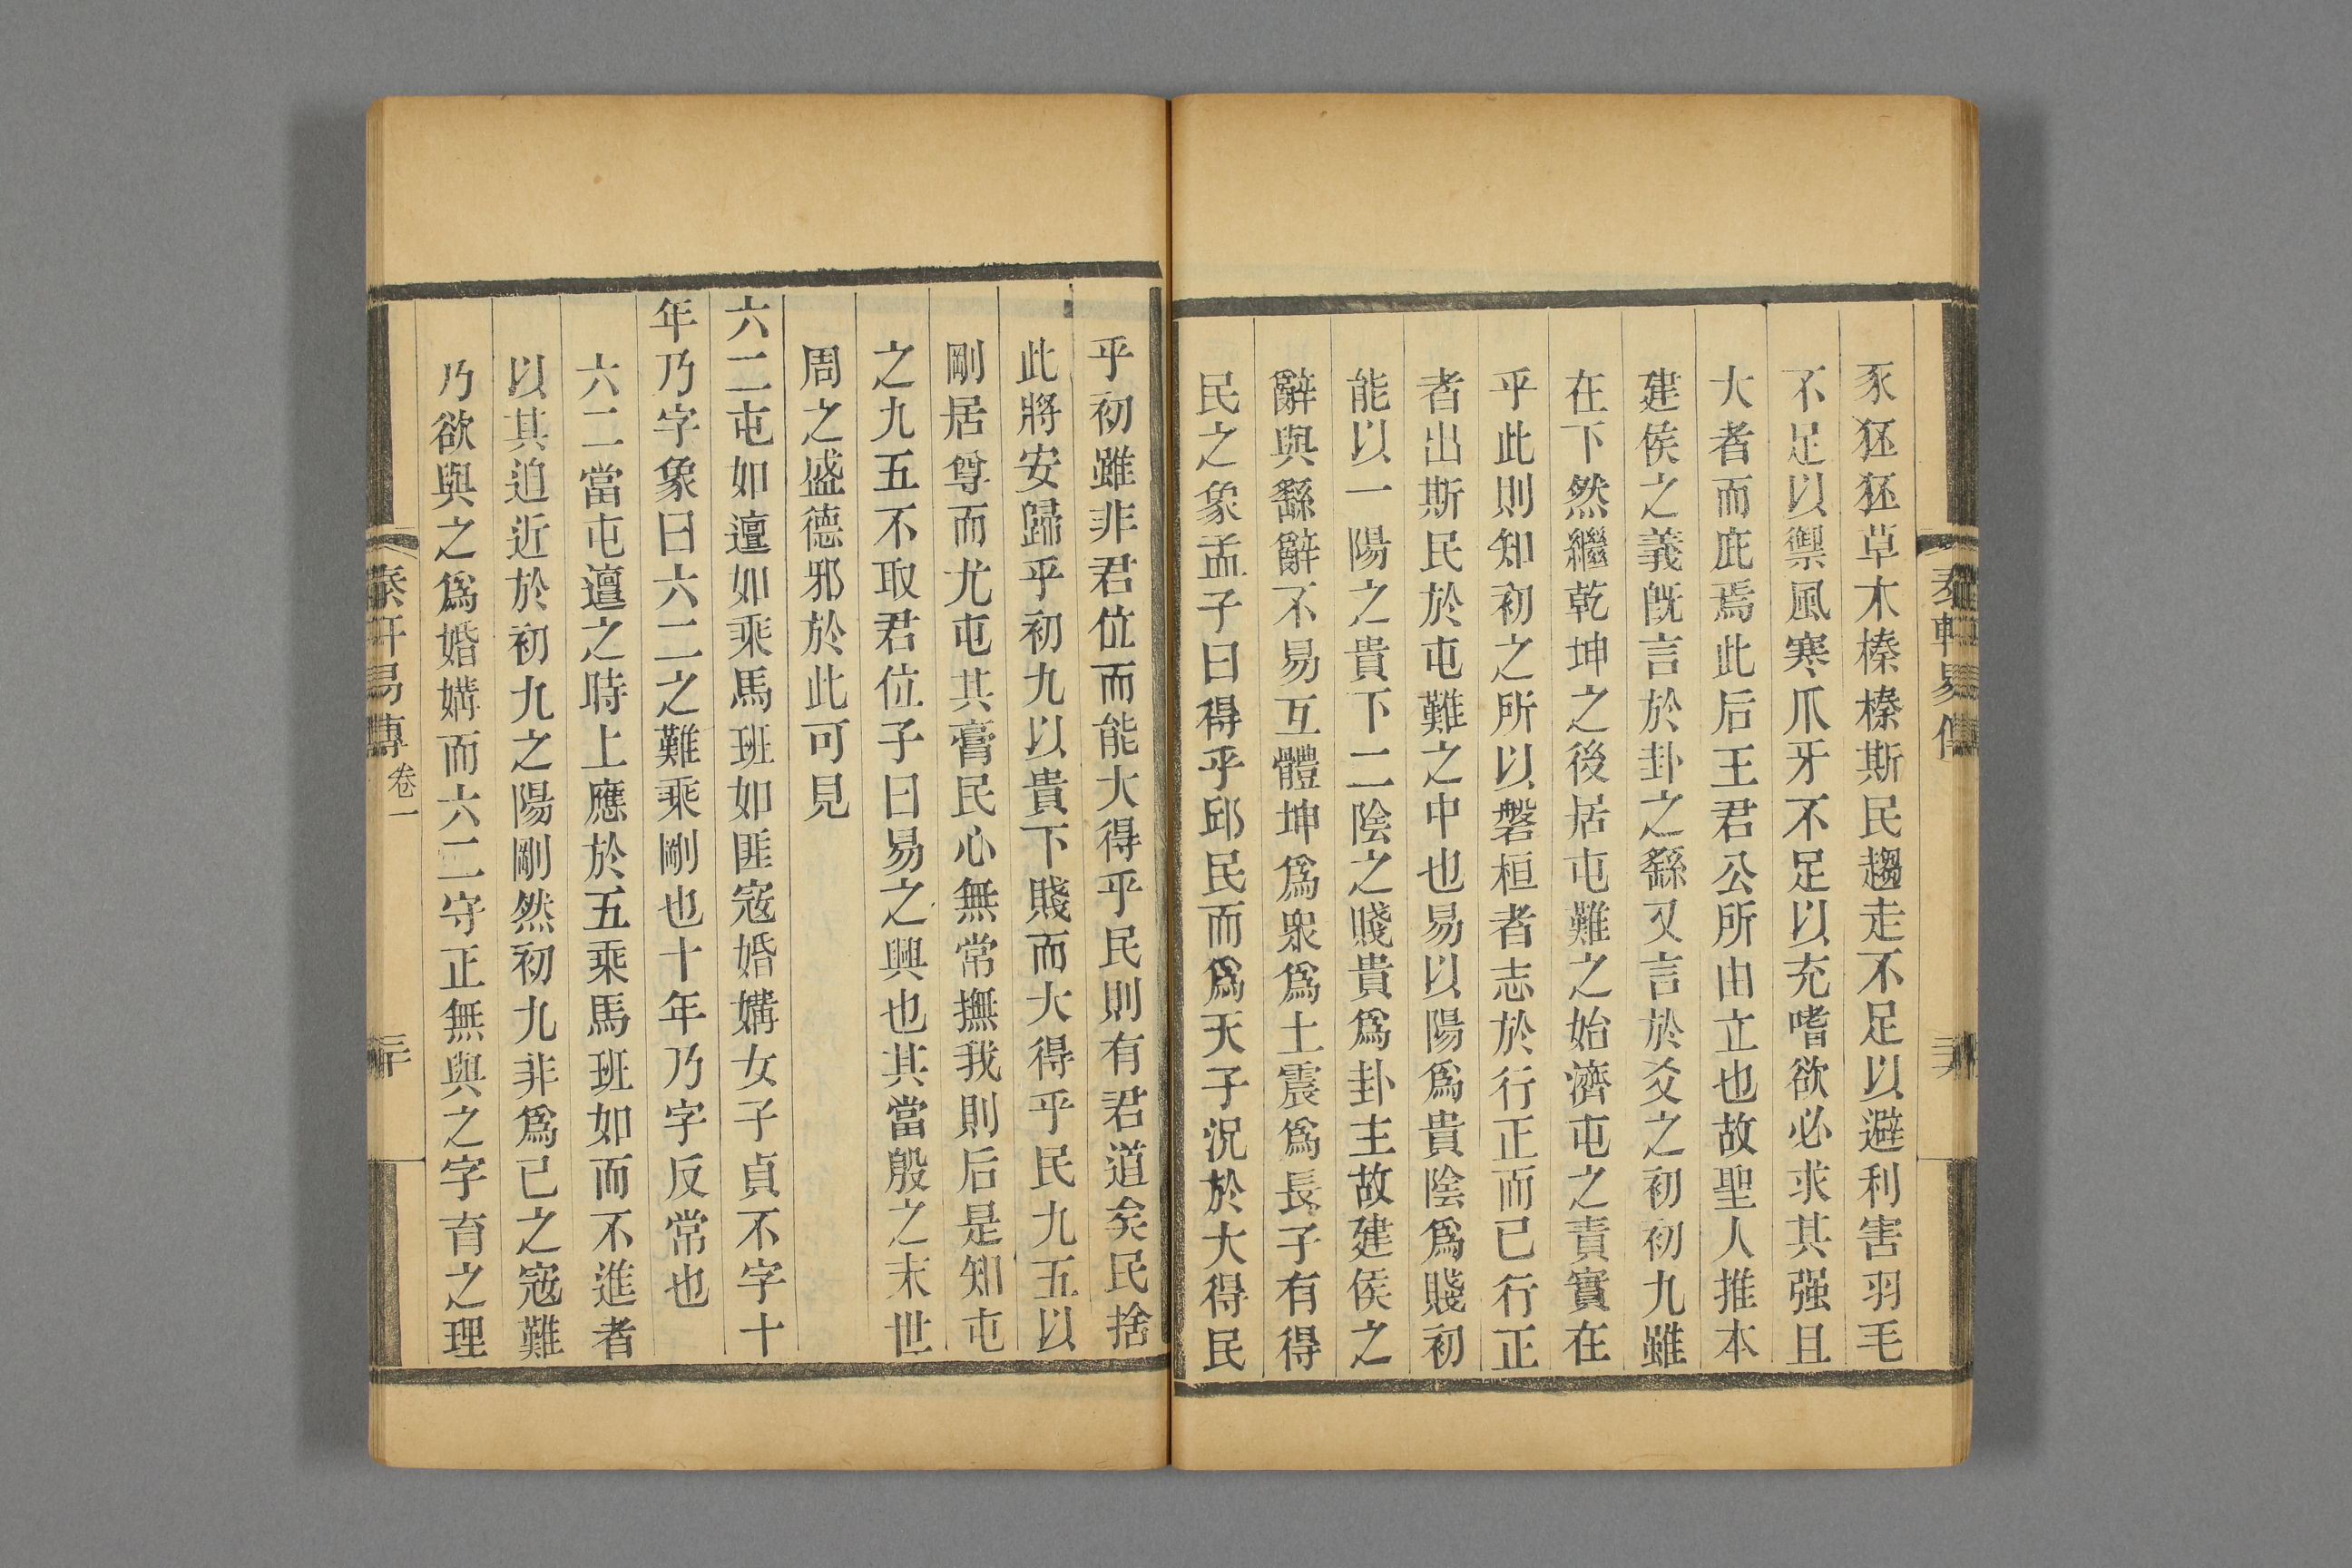 豕狉狉草木榛榛斯民趨走不足以避利害羽毛
不足以禦風寒爪牙不足以充嗜欲必求其强且
大者而庇焉此后王君公所由立也故聖人推本
建侯之義旣言於卦之繇又言於爻之初初九雖
在下然繼乾坤之後居屯難之始濟屯之責實在
乎此則知初之所以磐桓者志於行正而已行正
者出斯民於屯難之中也易以陽爲貴陰爲賤初
能以一陽之貴下二陰之賤貴爲卦主故建侯之
辭與繇辭不易互體坤爲衆爲土震爲長子有得
民之象孟子曰得乎邱民而爲天子況於大得民
乎初雖非君位而能大得乎民則有君道矣民捨
此將安歸乎初九以貴下賤而大得乎民九五以
剛居尊而尤屯其膏民心無常撫我則后是知屯
之九五不取君位子曰易之興也其當殷之末世
周之盛德邪於此可見
六二屯如邅如乘馬班如匪寇婚媾女子貞不字十
年乃字象曰六二之難乘剛也十年乃字反常也
六二當屯邅之時上應於五乘馬班如而不進者
以其迫近於初九之陽剛然初九非爲已之寇難
乃欲與之爲婚媾而六二守正無與之字育之理
易傳
卷一